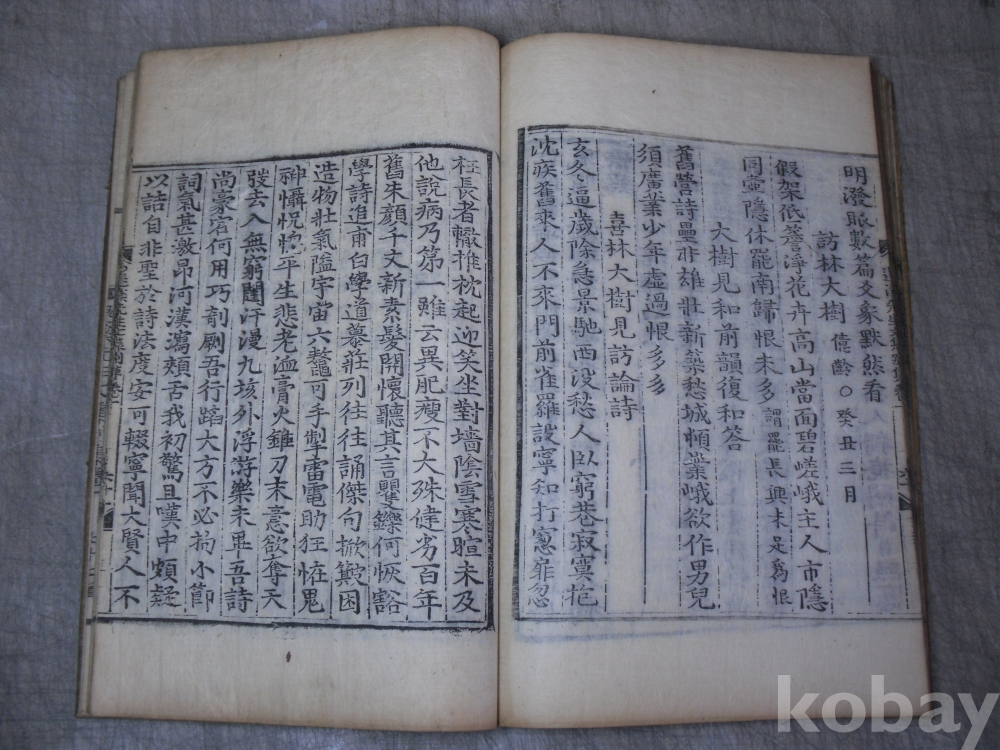 明潑眼數篇爻象默然看
訪林大樹 億齡○癸丑二月
假架低簷淨花卉高山當面碧嵯峨主人市隱
同壺隱休罷南歸恨未多 謂罷長興未足爲恨
大樹見和前韻復和答
舊營詩壘非雄壯新築愁城頓嶪峨欲作男兒
須廣業少年虛過恨多多
喜林大樹見訪論詩
玄冬逼歲除急景馳西沒愁人臥窮巷寂寞抱
沈疾舊來人不來門前雀羅設寧知打窓扉忽
枉長者轍推枕起迎笑坐對墻陰雪寒暄未及
他說病乃第一雖云異肥瘦不大殊健劣百年
舊朱顔千丈新素髮開懷聽其言矍鑠何恢豁
學詩追甫白學道慕莊列往往誦傑句掀簸困
造物壯氣隘宇宙六鼇可手掣雷電助狂怪鬼
神懾怳惚平生悲老洫膏火錐刀末意欲奪天
發去入無窮闥汗漫九垓外浮游樂未畢吾詩
尚豪宕何用巧剞劂吾行蹈大方不必拘小節
詞氣甚激昂河漢瀉頰舌我初驚且嘆中頗疑
以詰自非聖於詩法度安可輟寧聞大賢人不
kobay